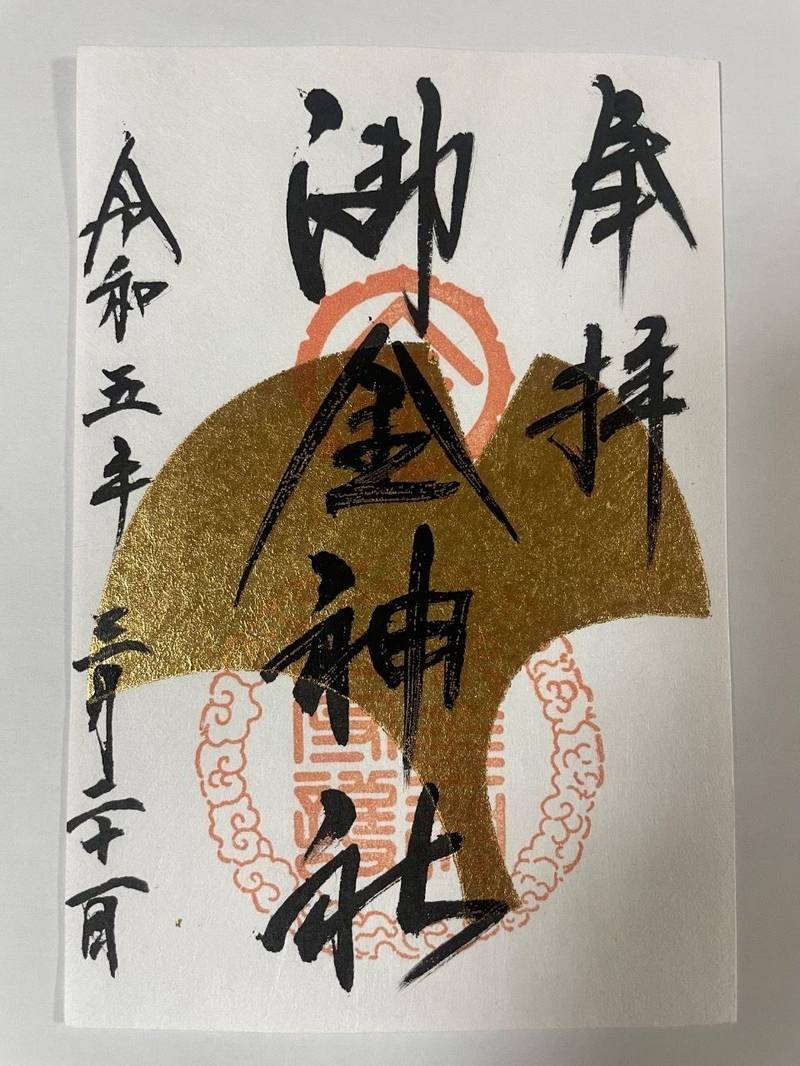 奉拝
御金神社
令和五年三月二十一日